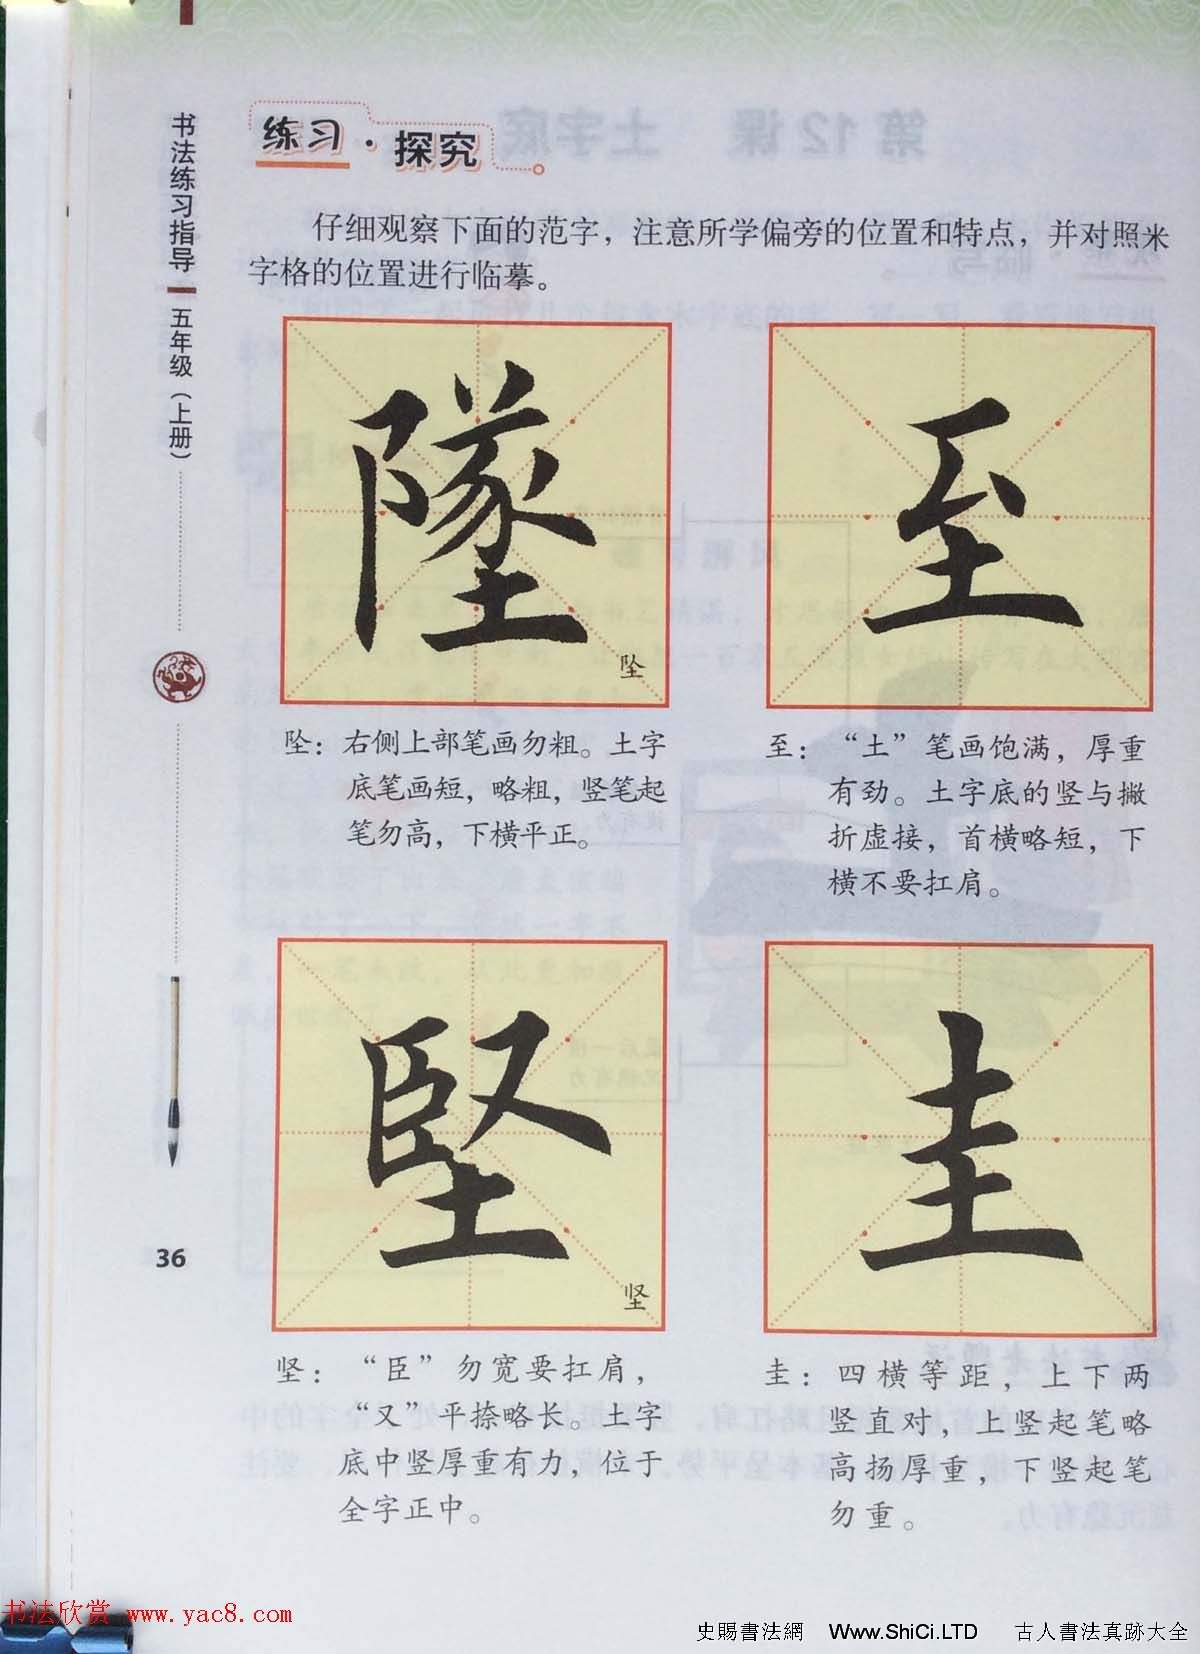 书法练习指导
五年级（上册）
36
练习·探究
仔细观察下面的范字，注意所学偏旁的位置和特点，并对照米
字格的位置进行临摹。
墜
坠
坠：右侧上部笔画勿粗。土字
底笔画短，略粗，竖笔起
笔勿高，下横平正。
至
至：“土”笔画饱满，厚重
有劲。土字底的竖与撇
折虚接，首横略短，下
横不要扛肩。
堅
坚
坚：“臣”勿宽要扛肩，
“又”平捺略长。土字
底中竖厚重有力，位于
全字正中。
圭
圭：四横等距，上下两
竖直对，上竖起笔略
高扬厚重，下竖起笔
勿重。
书法欣赏 www.yac8.com
史賜書法網 Www.ShiCi.LTD 古人書法真跡大全